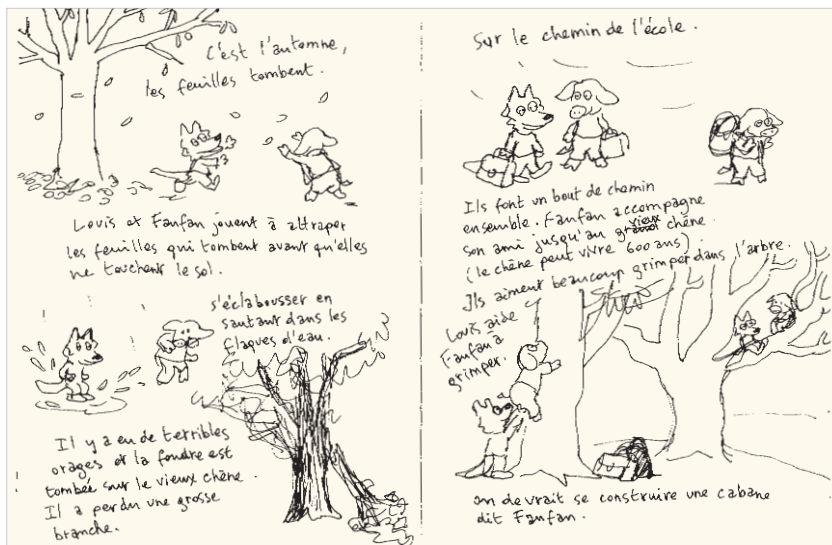 C'est l'automne,
les feuilles tombent.
Louis et Fanfan jouent à attraper
les feuilles qui tombent avant qu'elles
ne touchent le sol.
s'éclabousser en
sautant dans les
flaques d'eau.
Il y a eu de terribles
orages et la foudre est
tombée sur le vieux chêne.
Il a perdu une grosse
branche.
Sur le chemin de l'école.
Ils font un bout de chemin
ensemble. Fanfan accompagne
son ami jusqu'au vieux chêne.
(le chêne peut vivre 600 ans)
Ils aiment beaucoup grimper dans l'arbre.
Louis aide
Fanfan à
grimper.
on devrait se construire une cabane
dit Fanfan.